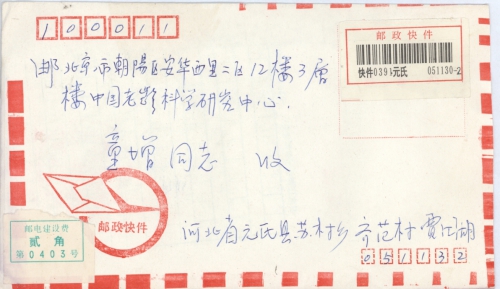 100011
邮政快件
快件0391元氏 051130-2
邮 北京市朝陽区安华西里二区12楼3層
楼中国老龄科学研究中心.
童增 同志 收
邮政快件
邮电建设费
贰角
第0403号
河北省元氏县苏村乡齐范村贾
051132